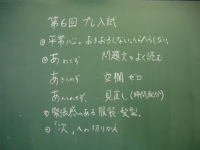 第6回プレ入試
平常心。おろおろしない、いらいらしない
あわてず 問題文をよく読む
あきらめず 空欄ゼロ
あんしんせず 見直し(時間配分)
緊張感のある服装・髪型。
「次」への切りかえ